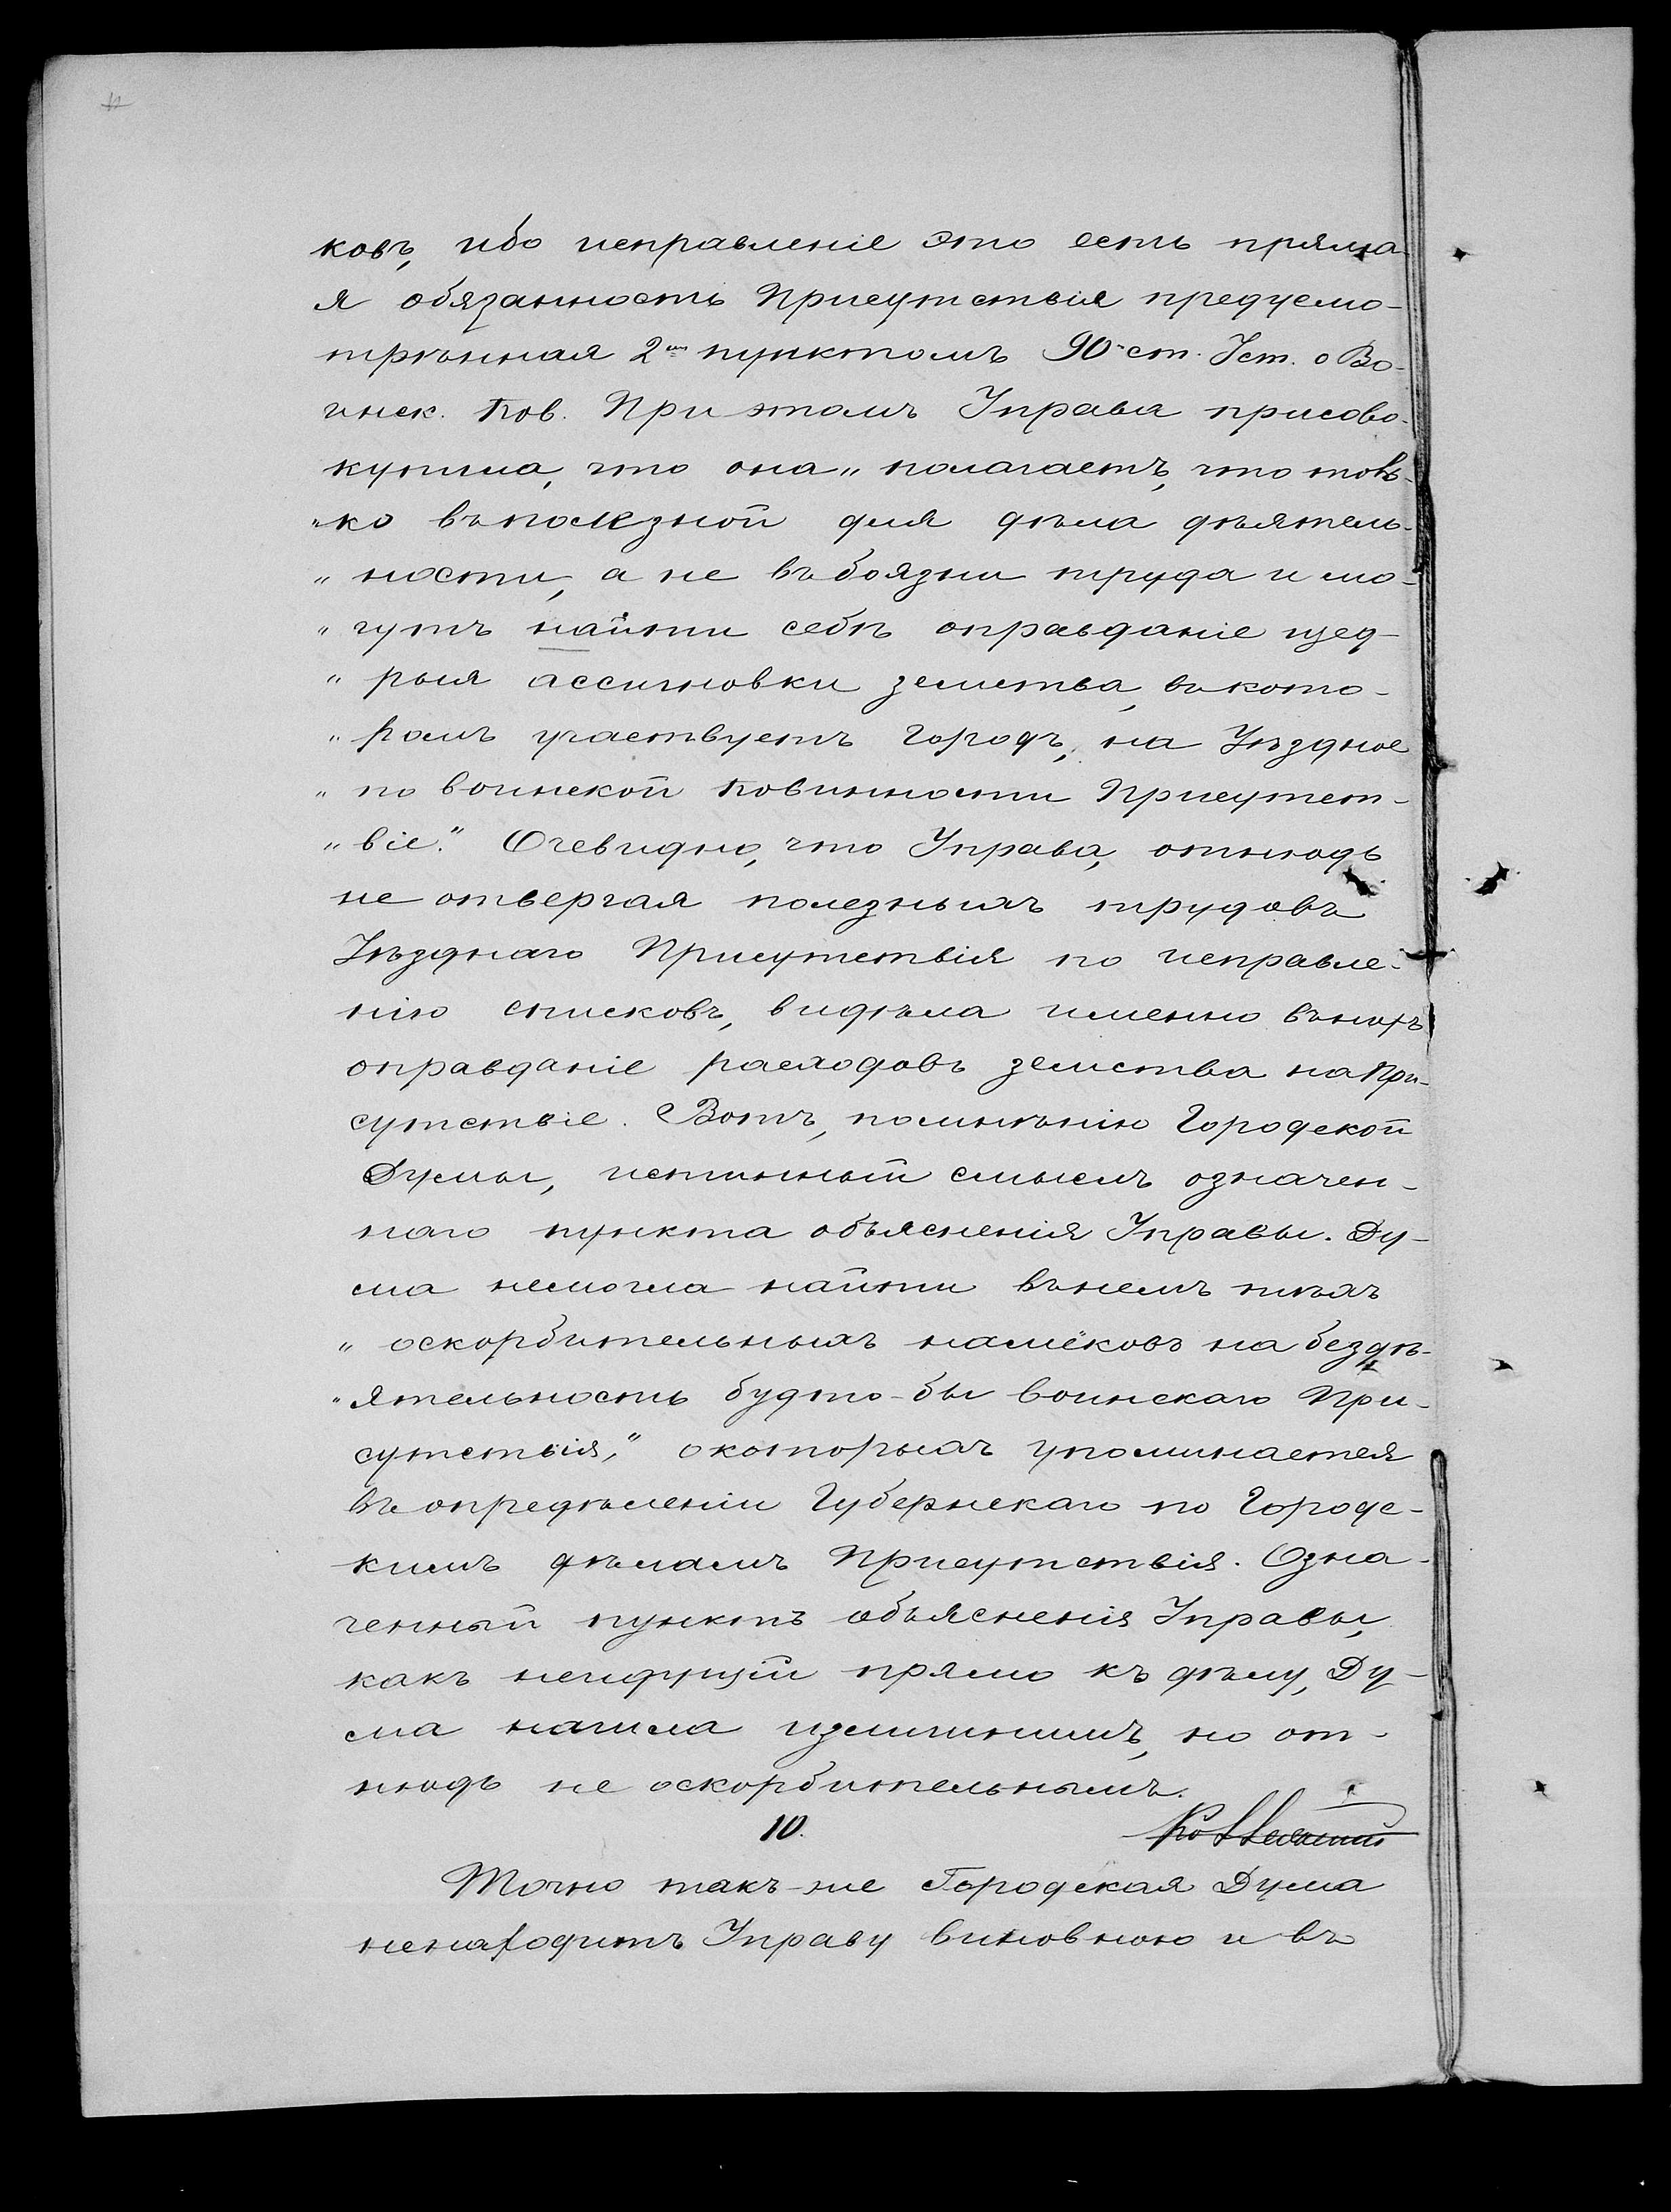 ковъ, ибо исправленіе это есть пряма-
я обязанность Присутствія предусмо-
трѣнная 2мъ пунктомъ 90 ст. Уст. о Во-
инск. Пов. При этомъ Управа присово-
купила, что она „полагаетъ, что толь-
„ко въ полезной для дѣла дѣятель-
„ности, а не въ боязни труда и мо-
„гутъ найти себѣ оправданіе щед-
„рыя ассигновки земства, въ кото-
„ромъ участвуетъ городъ, на Уѣздное
„по воинской повинности Присутст-
„віе.“ Очевидно, что Управа, отнюдь
не отвергая полезныхъ трудовъ
Уѣзднаго Присутствія по исправле-
нію списковъ, видѣла именно въ нихъ
оправданіе расходовъ земства на При-
сутствіе. Вотъ, по мнѣнію Городской
Думы, истинный смыслъ означен-
наго пункта объясненія Управы. Ду-
ма не могла найти въ немъ тѣхъ
„оскорбительныхъ намёковъ на бездѣ-
„ятельность будто-бы воинскаго При-
сутствія,“ о которыхъ упоминается
въ опредѣленіи Губернскаго по Городс-
кимъ дѣламъ Присутствія. Озна-
ченный пунктъ объясненія Управы,
какъ неидущій прямо къ дѣлу, Ду-
ма нашла излишнимъ, но от-
нюдь не оскорбительнымъ.
10.
Точно такъ-же Городская Дума
не находитъ Управу виновною и въ